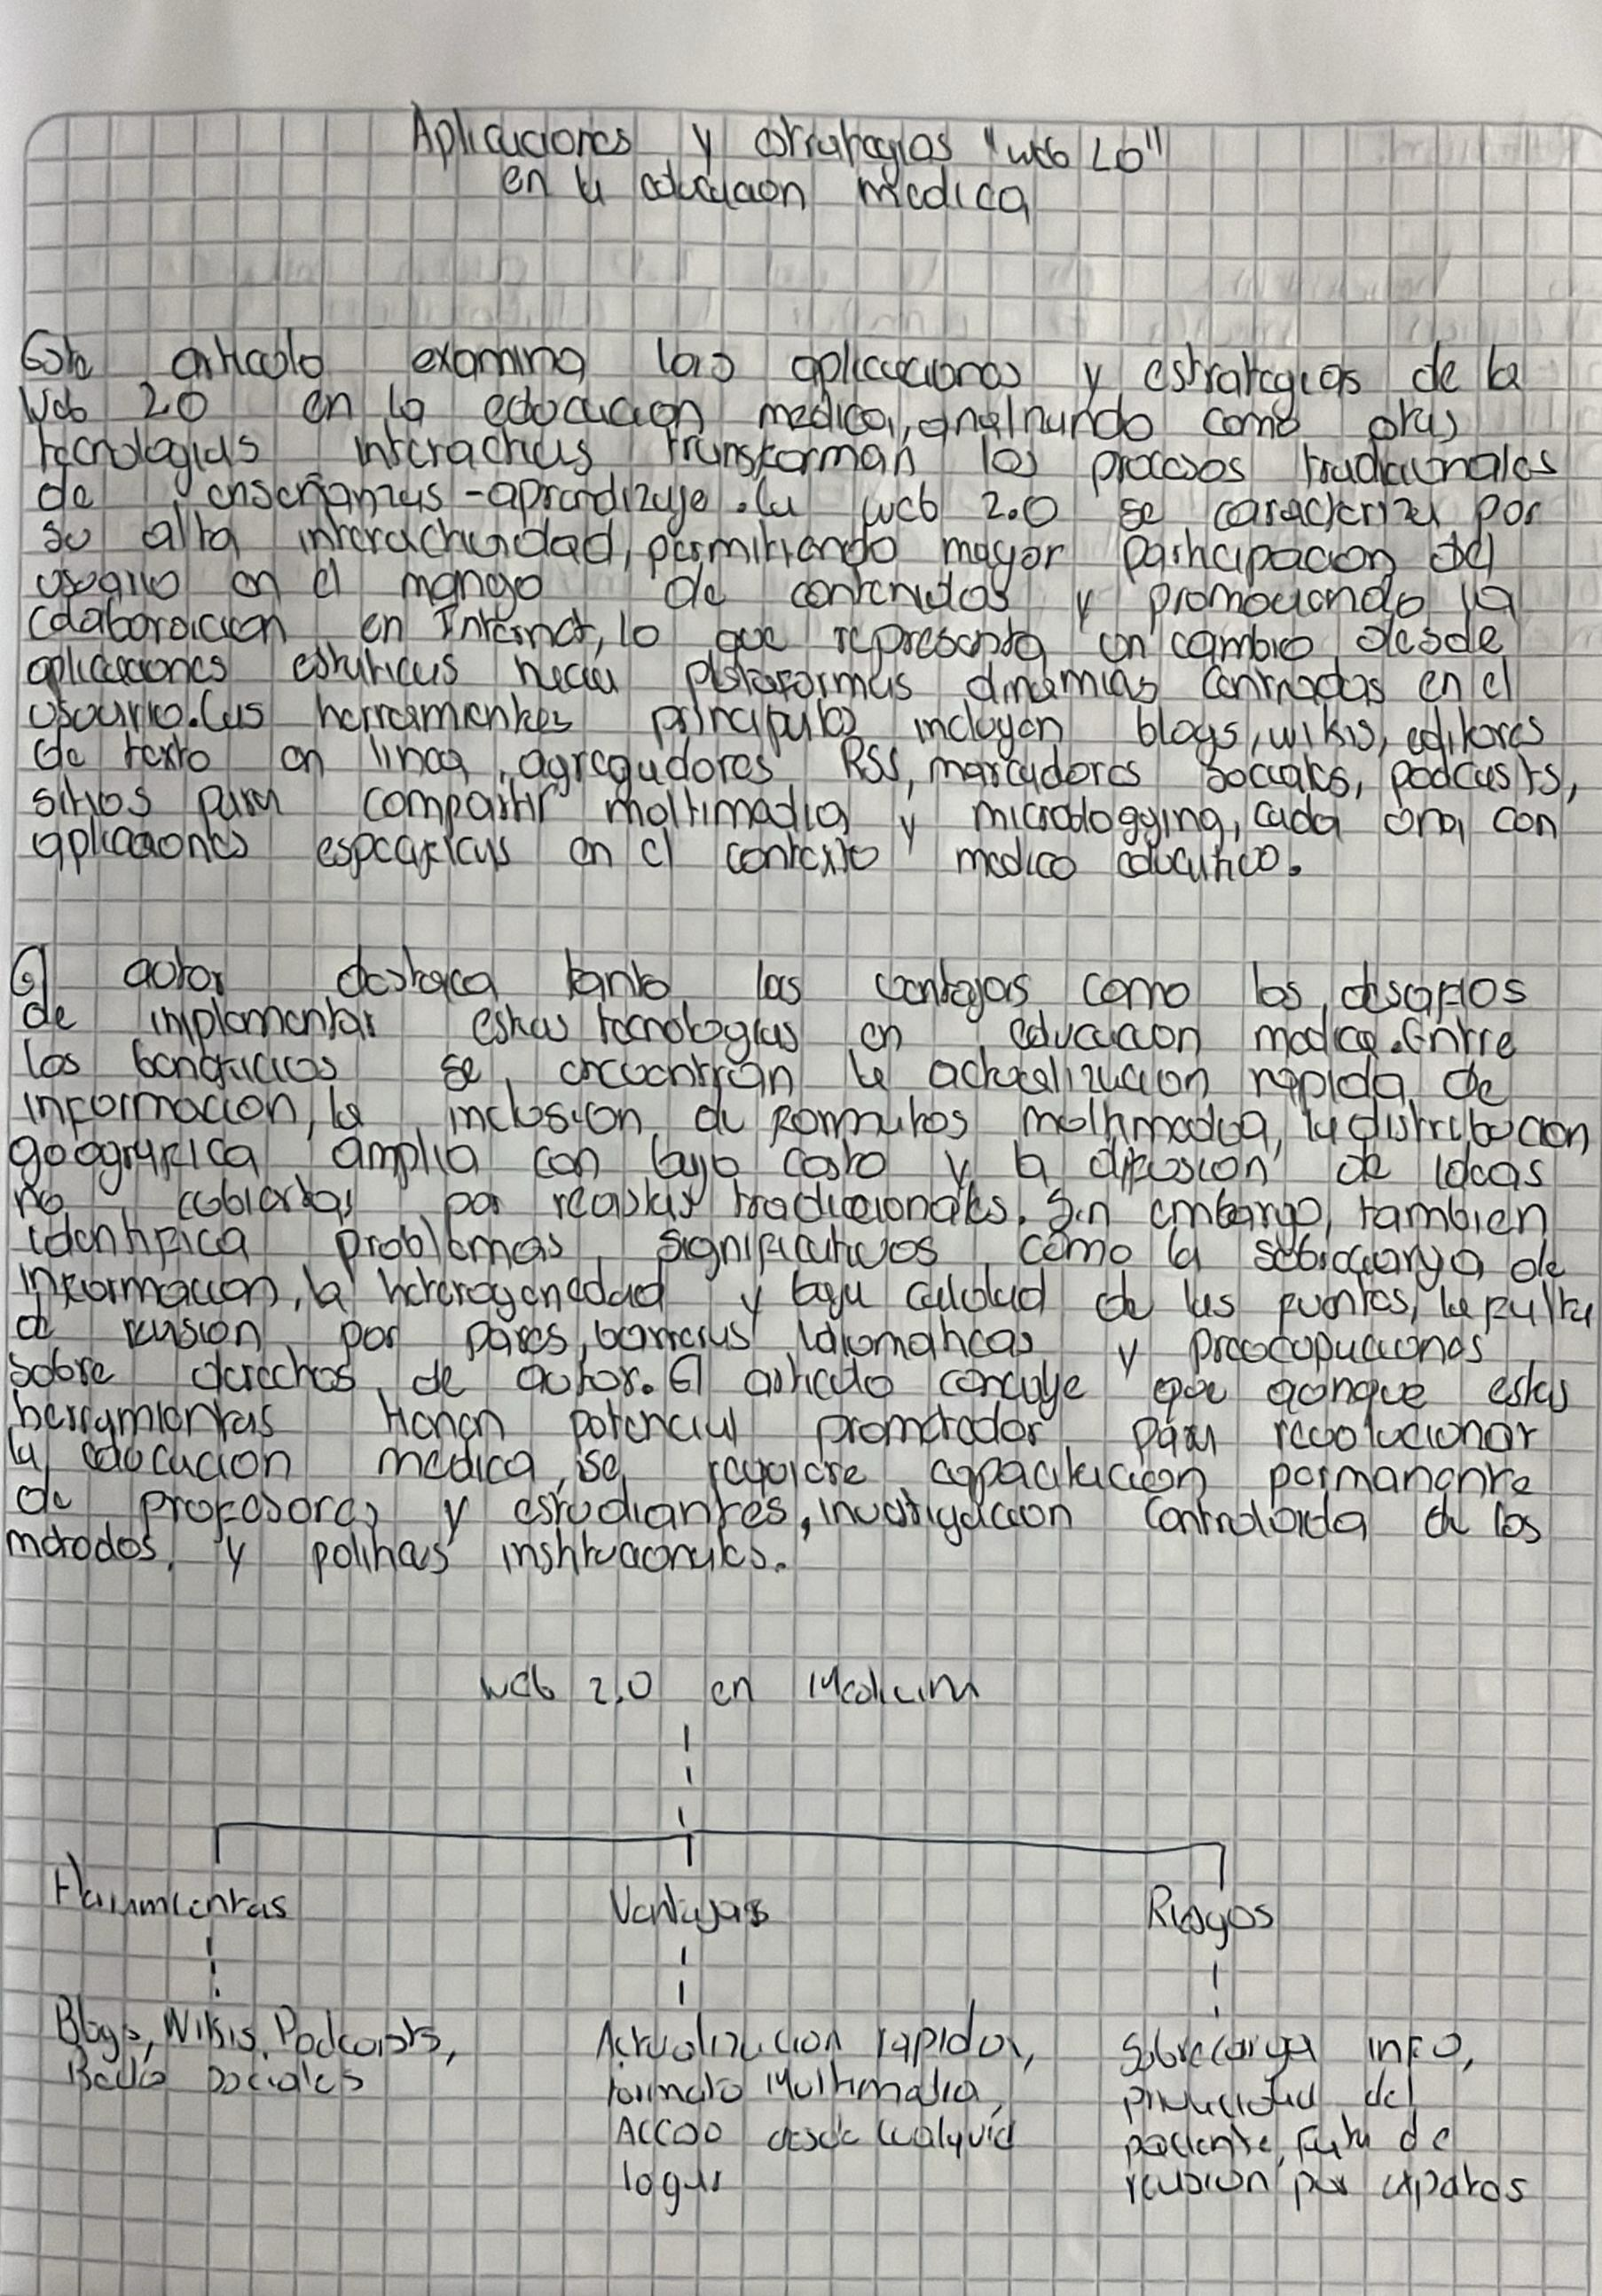 Aplicaciones y estrategias "web 2.0"
en la educacion medica
Este articulo examina las aplicaciones y estrategias de la
Web 2.0 en la educacion medica, analizando como estas
tecnologias interactivas transforman los procesos tradicionales
de enseñanzas - aprendizaje. La web 2.0 se caracteriza por
su alta interactividad, permitiendo mayor participacion del
usuario en el manejo de contenidos y promociando la
colaboracion en Internet, lo que representa un cambio desde
aplicaciones estaticas hacia plataformas dinamicas centradas en el
usuario. Las herramientas principales incluyen blogs, wikis, editores
de texto en linea, agregadores RSS, marcadores sociales, podcasts,
sitios para compartir multimedia y microblogging, cada una con
aplicaciones especificas en el contexto medico educativo.
El autor destaca tanto las ventajas como los desafios
de implementar estas tecnologias en educacion medica. Entre
los beneficios se encuentran la actualizacion rapida de
informacion, la inclusion de formatos multimedia, la distribucion
geografica amplia con bajo costo y la difusion de ideas
no cubiertas por revistas tradicionales. Sin embargo, tambien
identifica problemas significativos como la sobrecarga de
informacion, la heterogenedad y baja calidad de las fuentes, la falta
de revision por pares, barreras idiomaticas y preocupaciones
sobre derechos de autor. El articulo concluye que aunque estas
herramientas tienen potencial prometedor para revolucionar
la educacion medica, se requiere capacitacion permanente
de profesores y estudiantes, investigacion controlada de los
metodos, y politicas institucionales.
Web 2.0 en Medicina
Herramientas Ventajas Riesgos
Blogs, Wikis, Podcasts, Actualizacion rapida, Sobrecarga info,
Redes sociales formato Multimedia, privacidad del
Acceso desde cualquier paciente, Falta de
lugar revision por expertos